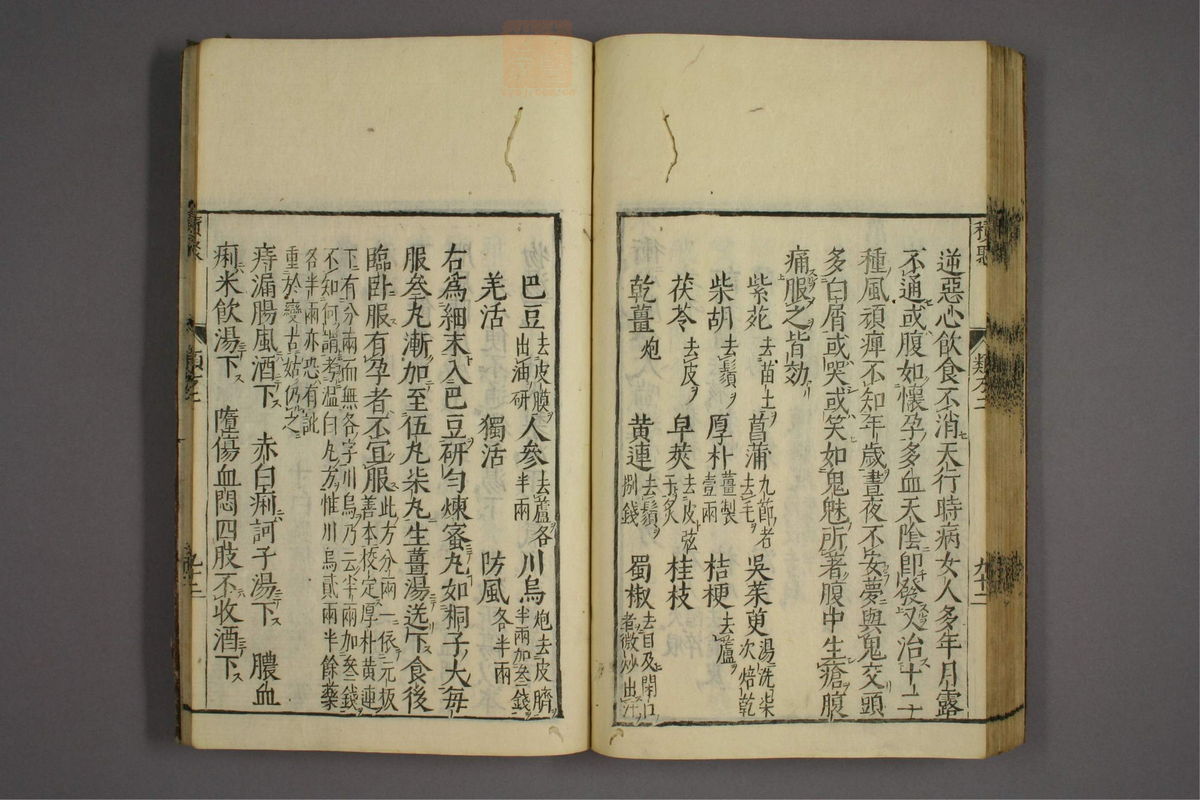 逆惡心飲食不消天行時病女人多年月露
不通或腹如懷孕多血天陰即發又治十二
種風頑痺不知年歲晝夜不安夢與鬼交頭
多白屑或哭或笑如鬼魅所著腹中生瘡腹
痛服之皆効
紫菀去苗土 菖蒲九節者去毛 吳茱萸湯洗柒次焙乾
柴胡去鬚 厚朴薑製壹兩 桔梗去蘆
茯苓去皮 皁莢去皮弦子炙 桂枝
乾薑炮 黃連去鬚捌錢 蜀椒去目及閉口者微炒出汗
巴豆去皮膜出油研 人參去蘆各半兩 川烏炮去皮臍半兩加叁錢
羌活 獨活 防風各半兩
右爲細末入巴豆研勻煉蜜丸如桐子大每
服叁丸漸加至伍丸柒丸生薑湯送下食後
臨臥服有孕者不宜服此方分兩一依元板善本校定厚朴黃連
下有分兩而無各字川烏乃云半兩加叁錢
不知何謂考溫白丸方惟川烏貳兩半餘藥
各半兩亦恐有訛
重於變古姑仍之
痔漏腸風酒下 赤白痢訶子湯下 膿血
痢米飲湯下 墮傷血悶四肢不收酒下